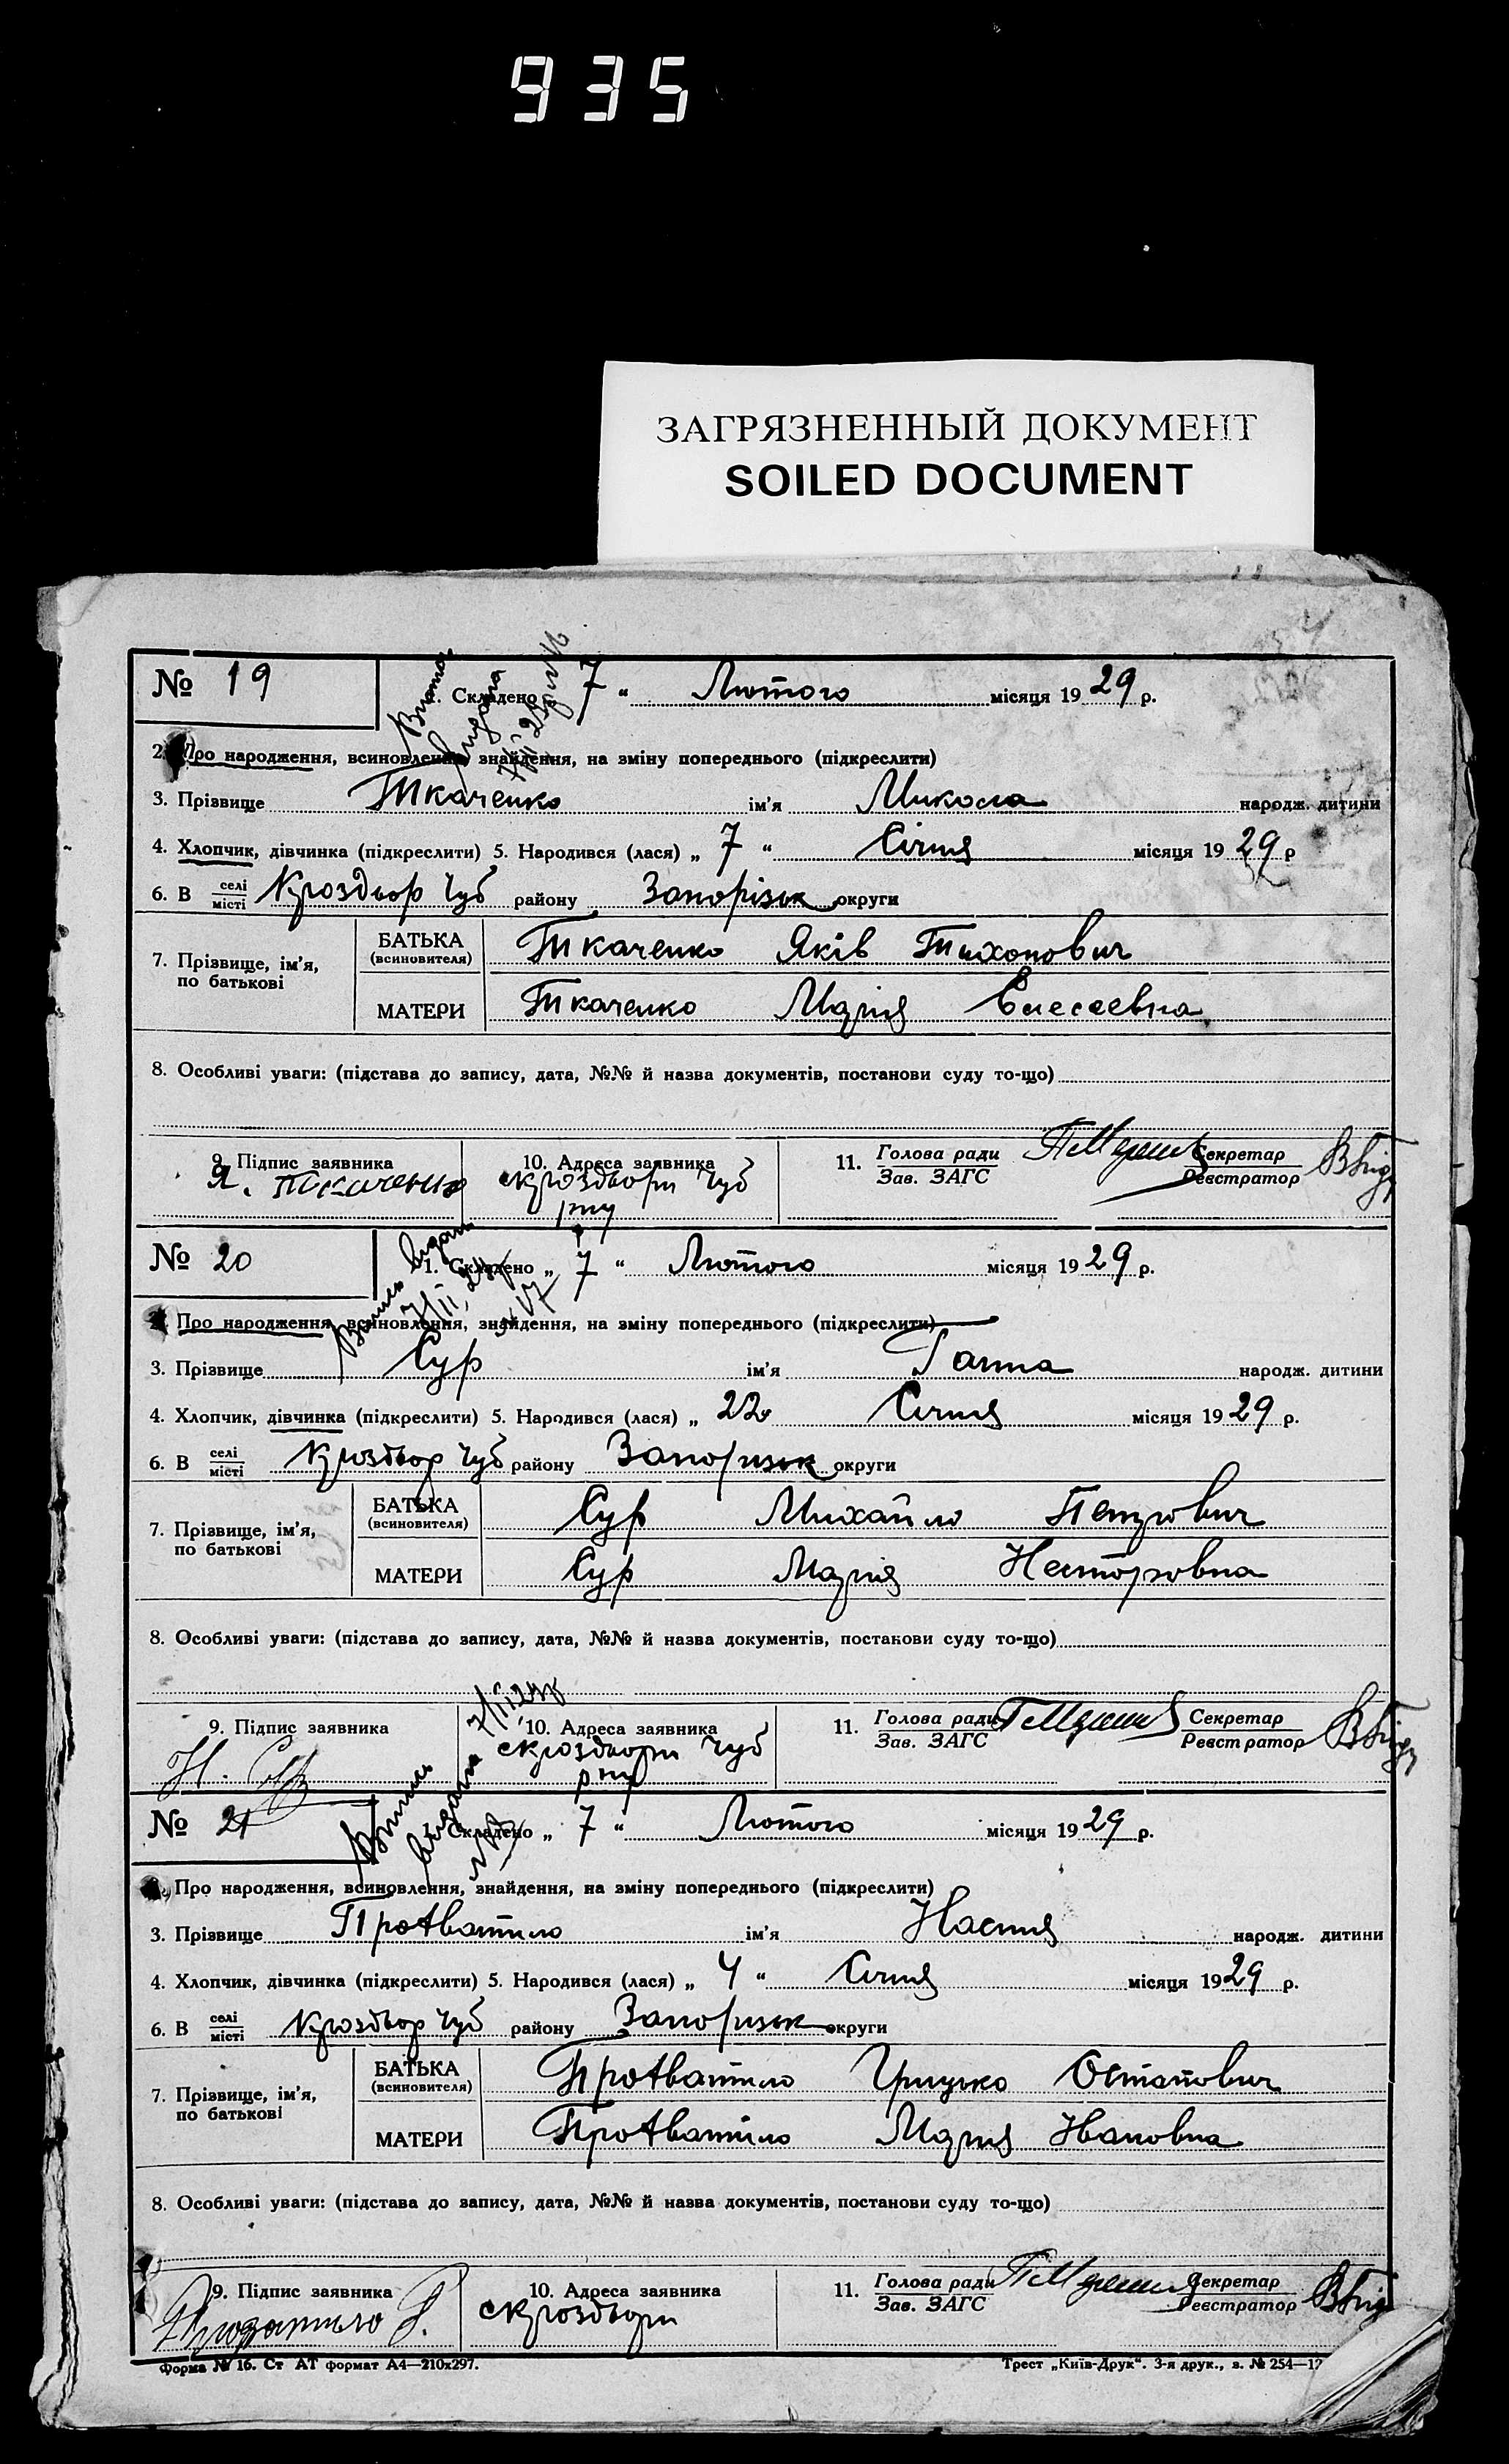 935
ЗАГРЯЗНЕННЫЙ ДОКУМЕНТ
SOILED DOCUMENT
№ 19
1. Складено „ 7 “ Лютого місяця 1929 р.
Видана
2. Про народження, всиновлення, знайдення, на зміну попереднього (підкреслити)
3. Прізвище Ткаченко ім'я Микола народж. дитини
4. Хлопчик, дівчинка (підкреслити) 5. Народився (лася) „ 7 “ Січня місяця 1929 р
6. В селі/місті Чуб району Запорізьк округи
7. Прізвище, ім'я, по батькові
БАТЬКА (всиновителя) Ткаченко Яків Тихонович
МАТЕРИ Ткаченко Марія Елесеевна
8. Особливі уваги: (підстава до запису, дата, №№ й назва документів, постанови суду то-що)
9. Підпис заявника
10. Адреса заявника
11. Голова ради
Зав. ЗАГС
Секретар
Реєстратор
Я. Ткаченко
Чуб
рну
№ 20
1. Складено „ 7 “ Лютого місяця 1929 р.
видана
7/II 29р
2. Про народження, всиновлення, знайдення, на зміну попереднього (підкреслити)
3. Прізвище Сур ім'я Ганна народж. дитини
4. Хлопчик, дівчинка (підкреслити) 5. Народився (лася) „ 22 Січня місяця 1929 р.
6. В селі/місті Чуб району Запоризьк округи
7. Прізвище, ім'я, по батькові
БАТЬКА (всиновителя) Сур Михайло Петрович
МАТЕРИ Сур Марія Несторовна
8. Особливі уваги: (підстава до запису, дата, №№ й назва документів, постанови суду то-що)
7/II 29р
9. Підпис заявника
10. Адреса заявника
11. Голова ради
Зав. ЗАГС
Секретар
Реєстратор
Чуб
рну
№ 21
1. Складено „ 7 “ Лютого місяця 1929 р.
Витяг
видана
2. Про народження, всиновлення, знайдення, на зміну попереднього (підкреслити)
3. Прізвище ім'я Настя народж. дитини
4. Хлопчик, дівчинка (підкреслити) 5. Народився (лася) „ 4 “ Січня місяця 1929 р.
6. В селі/місті Чуб району Запоризьк округи
7. Прізвище, ім'я, по батькові
БАТЬКА (всиновителя) Грицько Остапович
МАТЕРИ Марія Ивановна
8. Особливі уваги: (підстава до запису, дата, №№ й назва документів, постанови суду то-що)
9. Підпис заявника
10. Адреса заявника
11. Голова ради
Зав. ЗАГС
Секретар
Реєстратор
Форма № 16. Ст АТ формат А4—210х297.
Трест „Київ-Друк“. 3-я друк., з. № 254—12